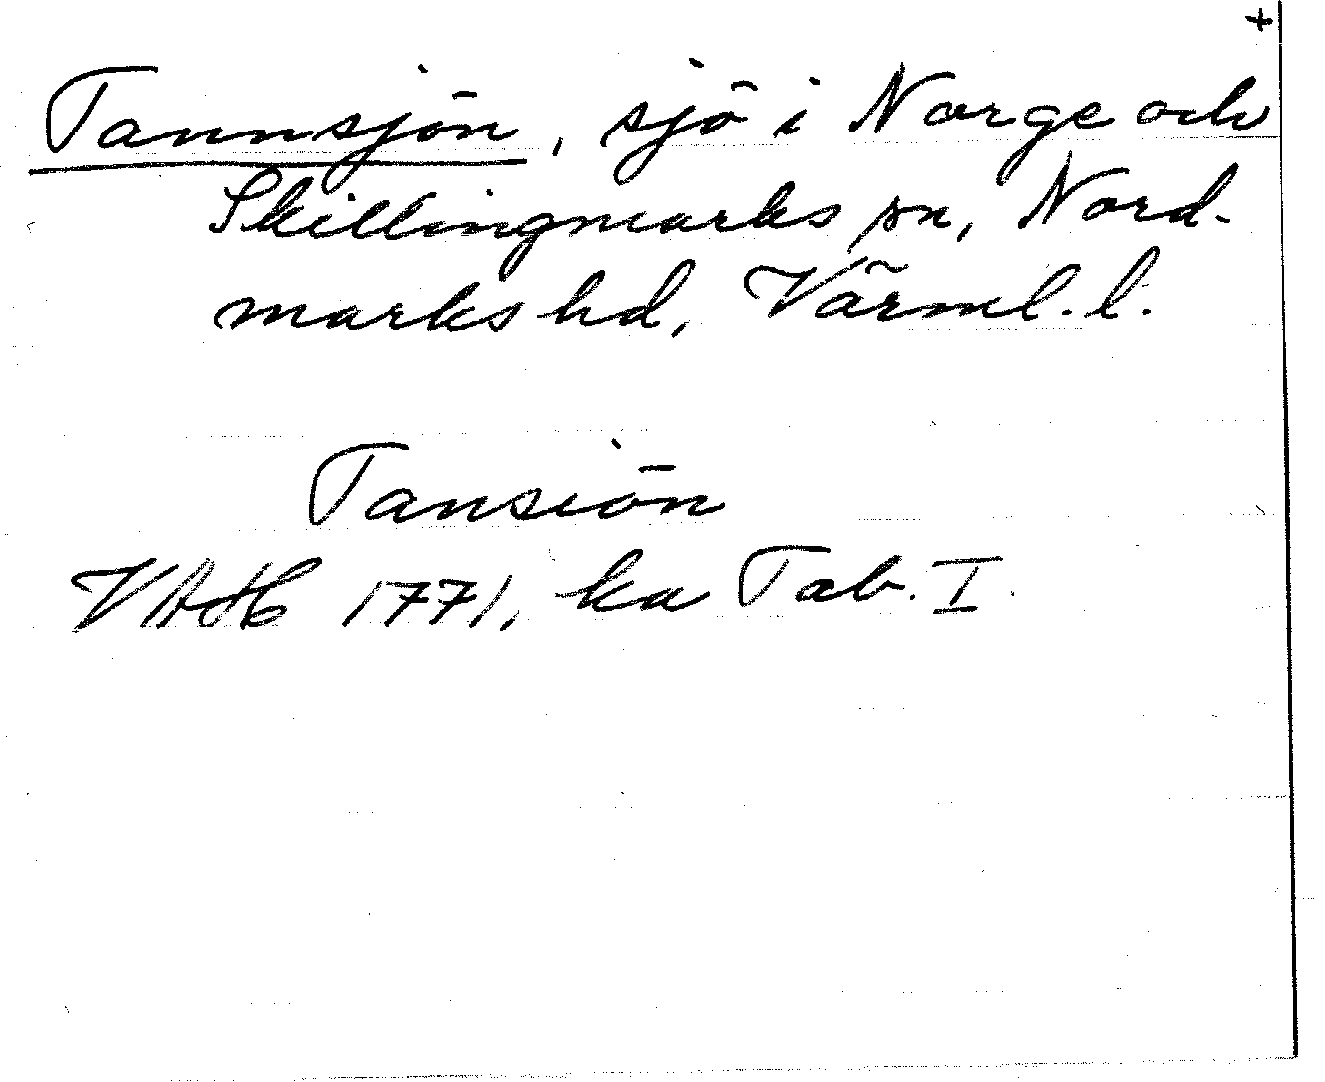 +
Tannsjön, sjö i Norge och
Skillingmarks sn, Nord-
marks hd, Värml. l.
Tansiön
VAH 1771, ka Tab. I.